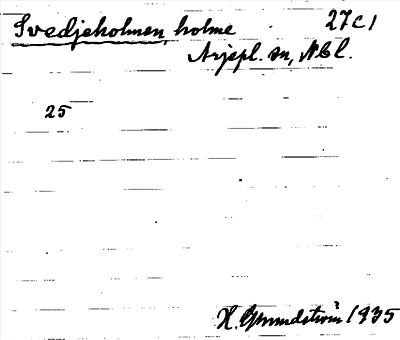 Svedjeholmen, holme 27c1
Arjepl. sn, Nbl.
25
H. Grundström 1935